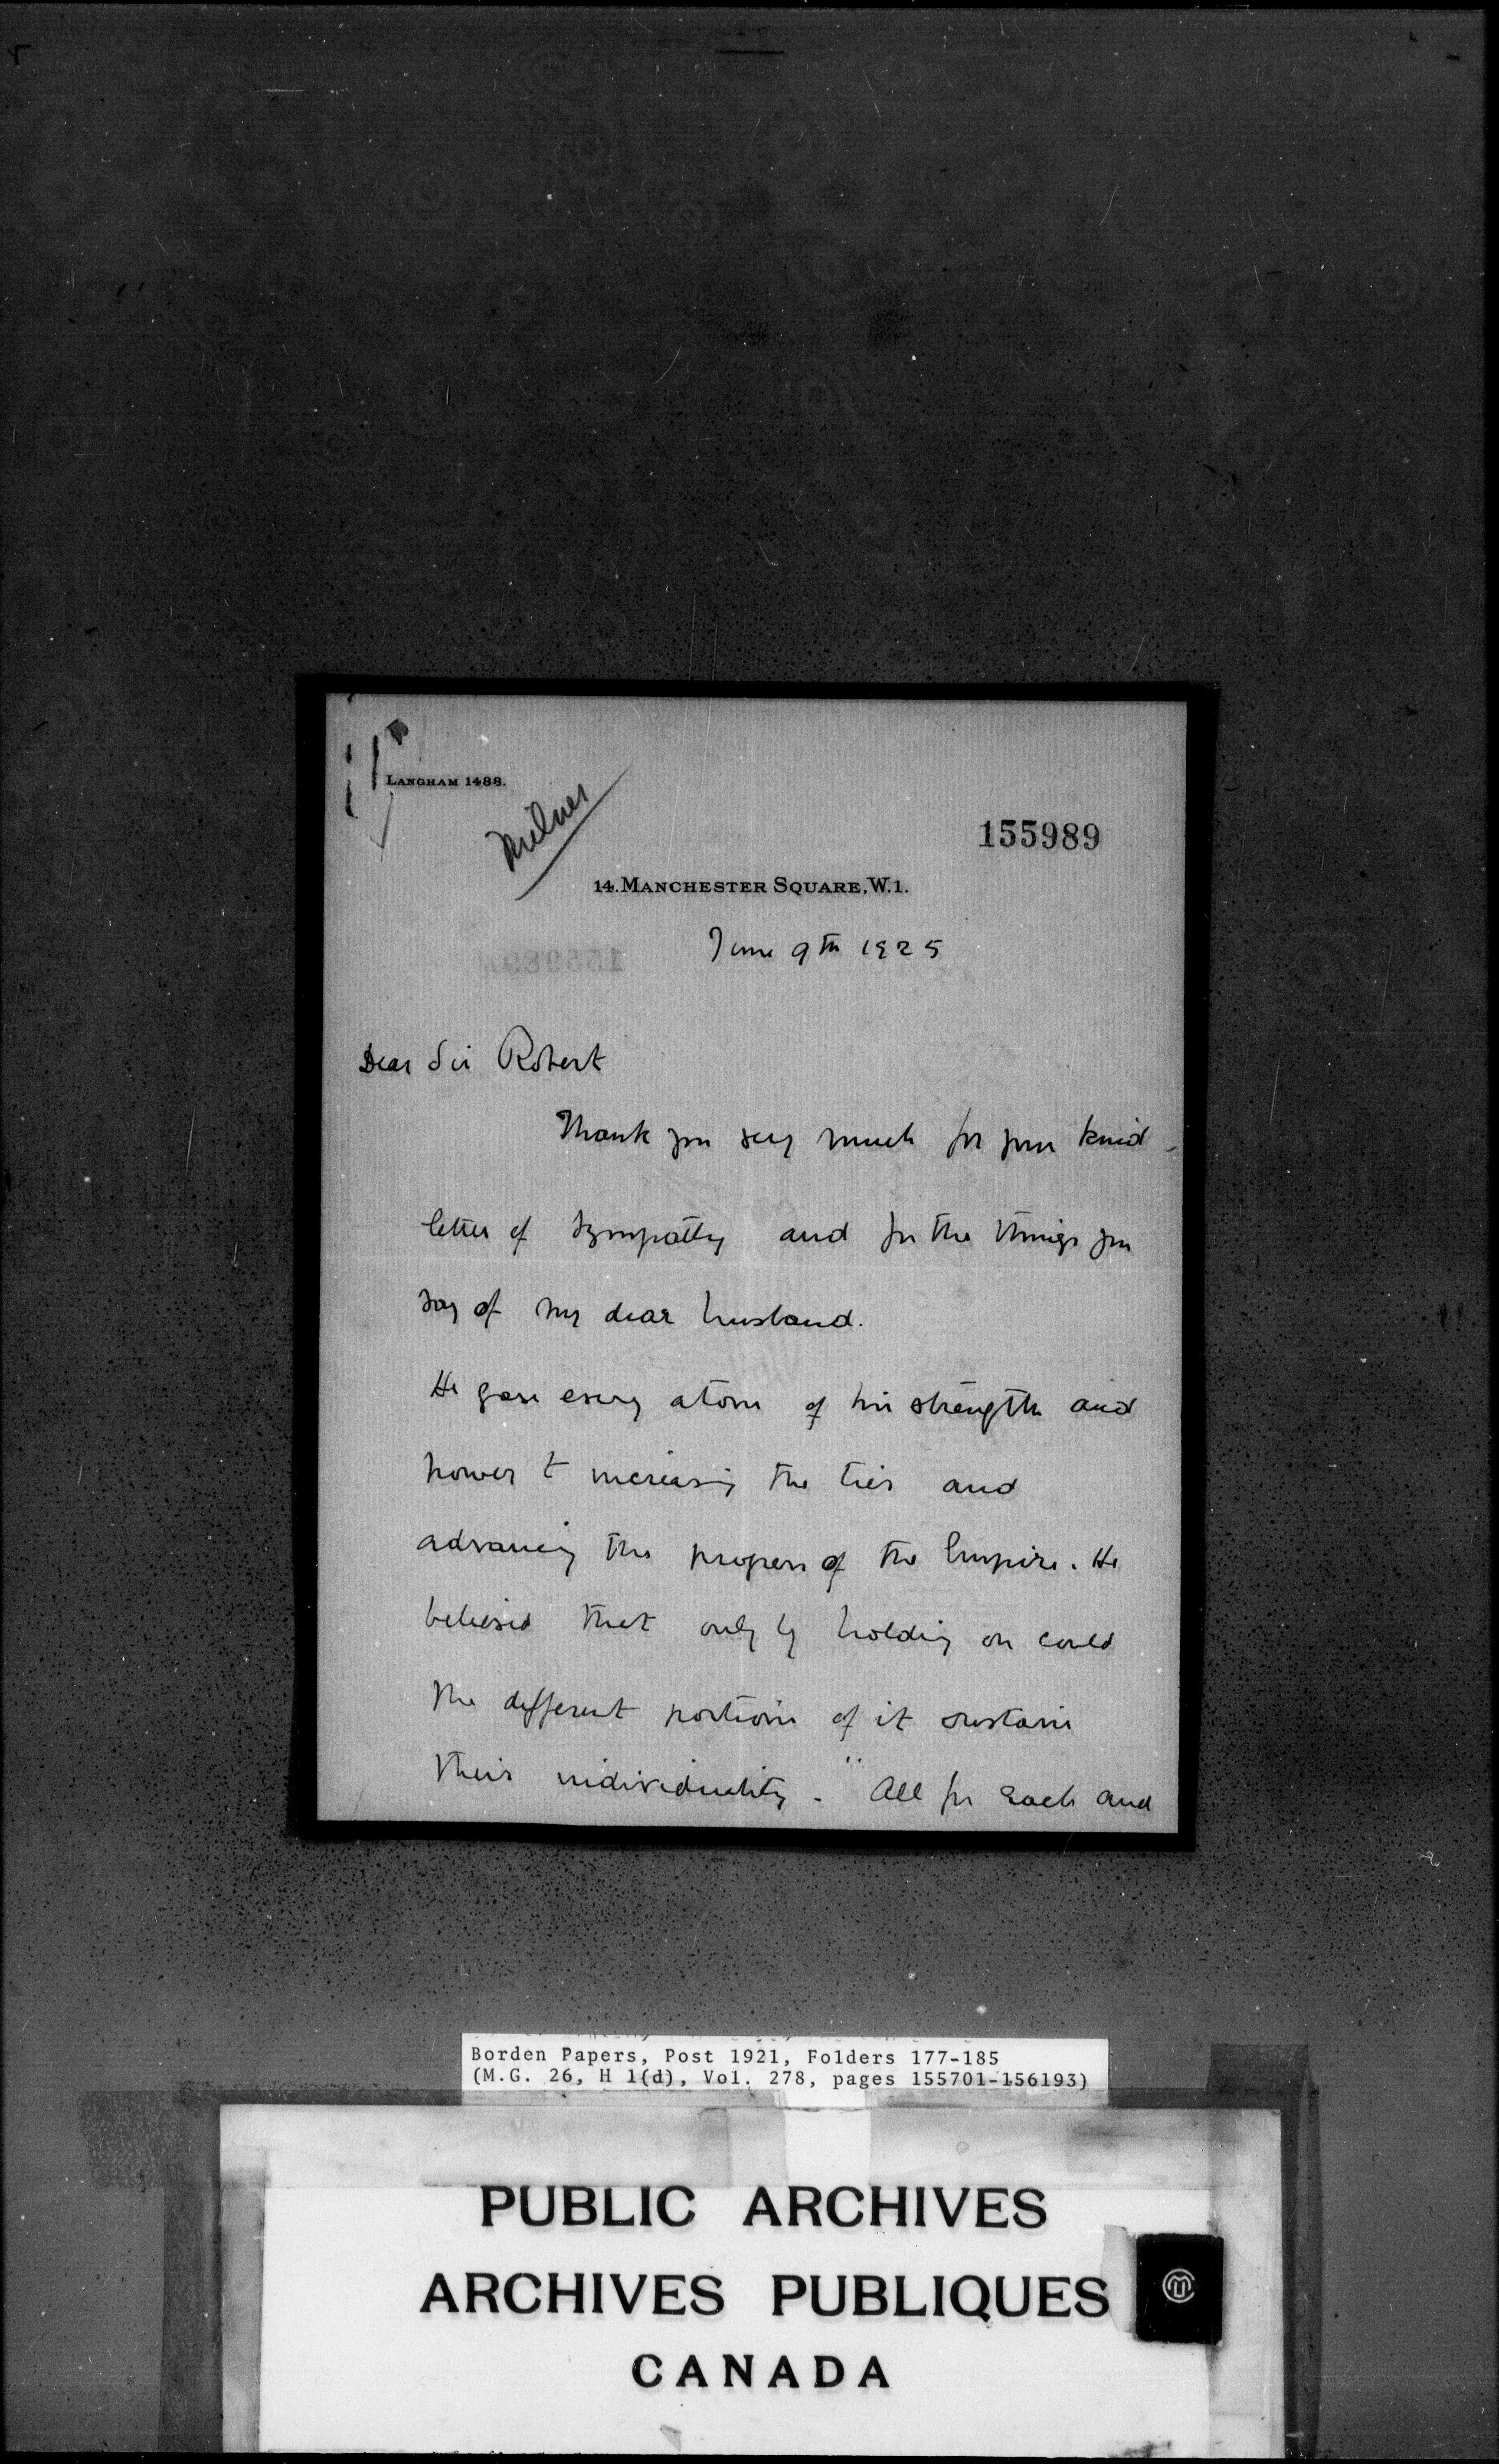 LANGHAM 1488.
Milner
155989
14. MANCHESTER SQUARE, W.1.
June 9th 1925
Dear Sir Robert
Thank you very much for your kind
letter of sympathy and for the things you
say of my dear husband.
He gave every atom of his strength and
power to increasing the ties and
advancing the progress of the Empire. He
believed that only by holding on could
the different portions of it sustain
their individuality. "All for each and
Borden Papers, Post 1921, Folders 177-185
(M.G. 26, H 1(d), Vol. 278, pages 155701-156193)
PUBLIC ARCHIVES
ARCHIVES PUBLIQUES
CANADA